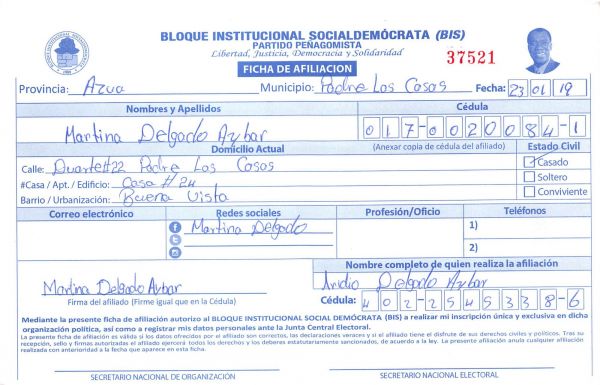 BLOQUE INSTITUCIONAL SOCIALDEMÓCRATA (BIS)
PARTIDO PEÑAGOMISTA
Libertad, Justicia, Democracia y Solidaridad
37521
FICHA DE AFILIACION
Provincia: Azua Municipio: Padre Las Casas Fecha: 23 01 19
Nombres y Apellidos Cédula
Martina Delgado Aybar 017-0020084-1
Domicilio Actual (Anexar copia de cédula del afiliado) Estado Civil
Calle: Duarte#22 Padre Las Casas Casado
#Casa / Apt. / Edificio: Casa # 24 Soltero
Barrio / Urbanización: Buena Vista Conviviente
Correo electrónico Redes sociales Profesión/Oficio Teléfonos
Martina Delgado 1)
2)
Nombre completo de quien realiza la afiliación
Martina Delgado Aybar Delgado Aybar
Firma del afiliado (Firme igual que en la Cédula) Cédula: 402-2545338-6
Mediante la presente ficha de afiliación autorizo al BLOQUE INSTITUCIONAL SOCIAL DEMÓCRATA (BIS) a realizar mi inscripción única y exclusiva en dicha
organización política, así como a registrar mis datos personales ante la Junta Central Electoral.
La presente ficha de afiliación es válida si los datos ofrecidos por el afiliado son correctos, las declaraciones veraces y si el titular disfruta de sus derechos civiles y políticos. Tras su
recepción, sello y firmas autorizadas el afiliado ejercerá todos los derechos y los deberes estatutariamente sancionados, de acuerdo a la ley. La presente afiliación anula cualquier afiliación
realizada con anterioridad a la fecha que aparece en esta ficha.
SECRETARIO NACIONAL DE ORGANIZACIÓN SECRETARIO NACIONAL ELECTORAL